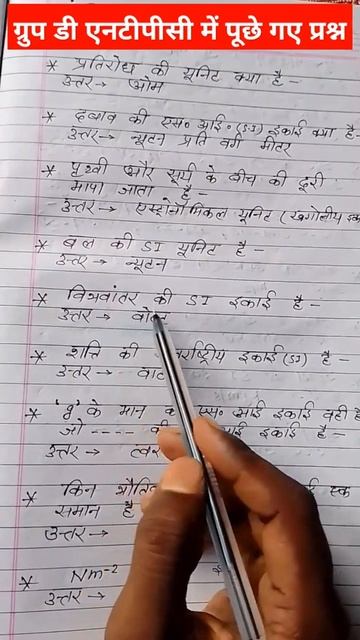 ग्रुप डी एनटीपीसी में पूछे गए प्रश्न
* प्रतिरोध की यूनिट क्या है -
उत्तर → ओम
* दबाव की एस० आई० (SI) इकाई क्या है-
उत्तर → न्यूटन प्रति वर्ग मीटर
* पृथ्वी और सूर्य के बीच की दूरी
मापा जाता है -
उत्तर → एस्ट्रोनॉमिकल यूनिट (खगोलीय इक
* बल की SI यूनिट है -
उत्तर → न्यूटन
* विभवांतर की SI इकाई है -
उत्तर →
* शक्ति की इकाई (SI) है -
उत्तर → वाट
* 'g' के मान एस० आई इकाई वही
जो ---- इकाई है -
उत्तर → त्वर
* किन
समान है
उत्तर →
* Nm-2
उत्तर →